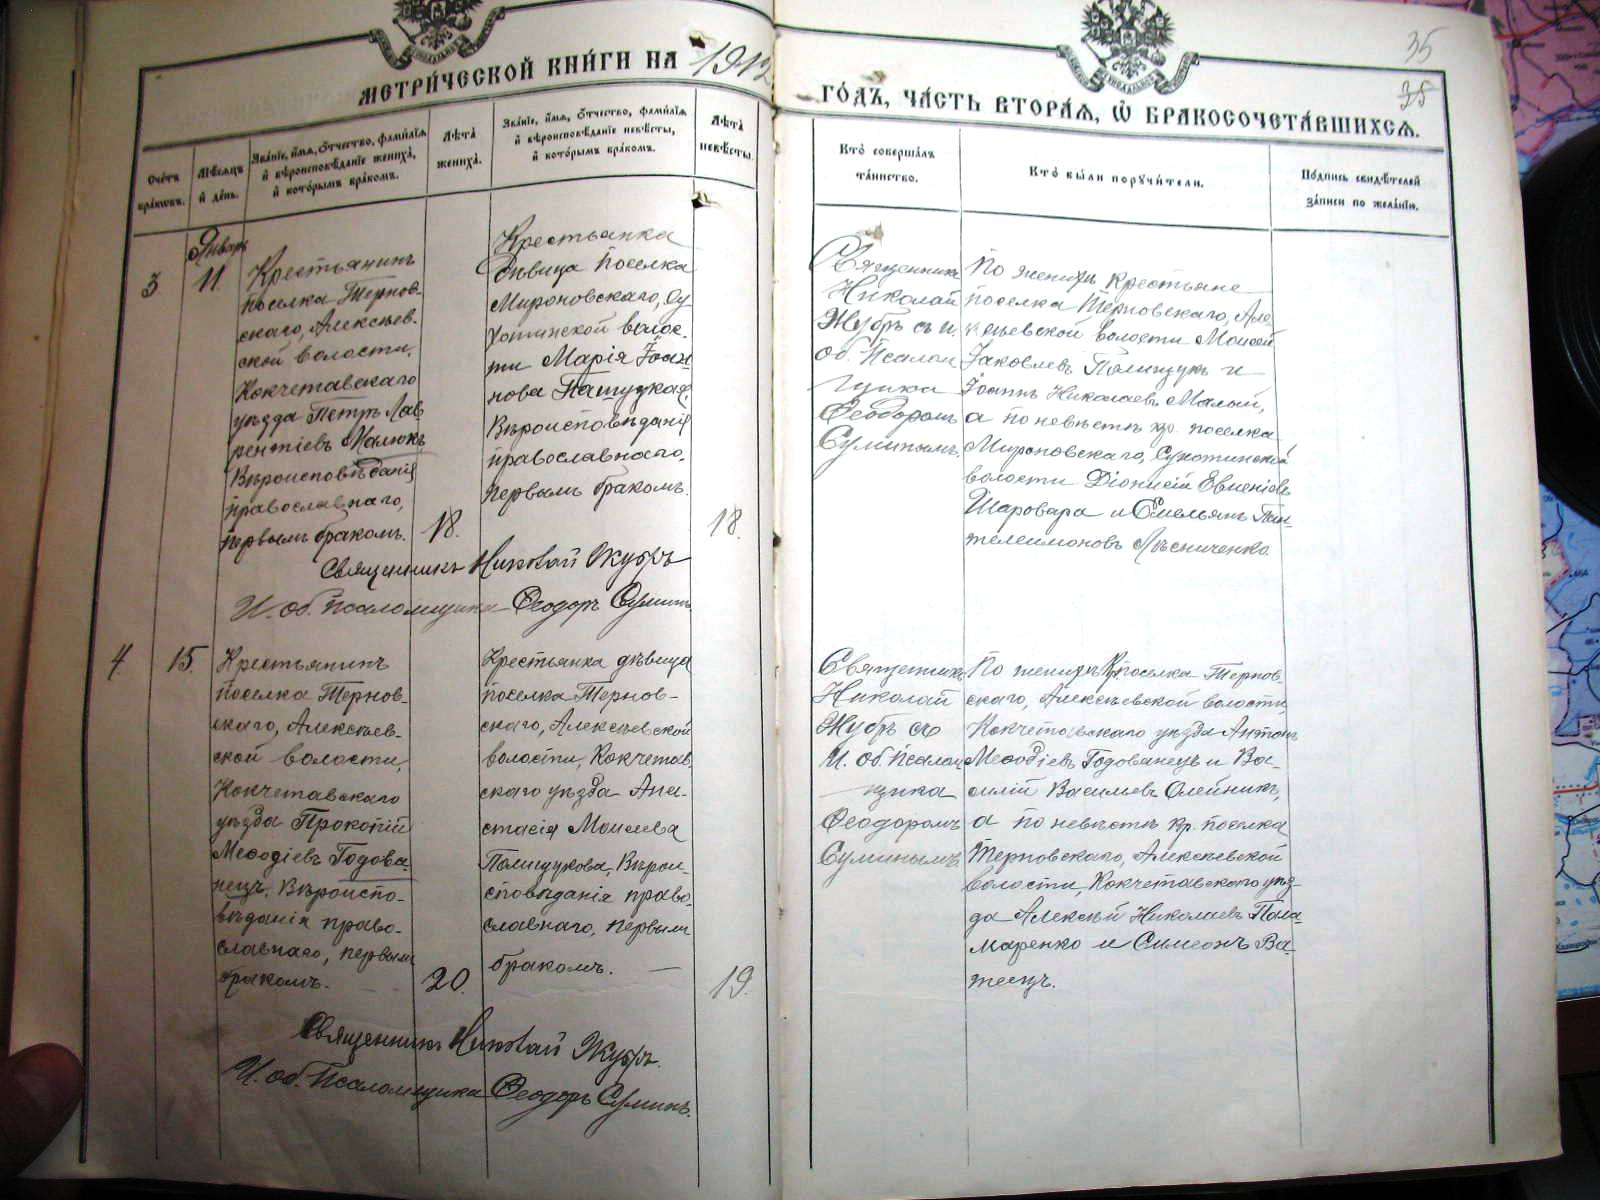 МЕТРИ́ЧЕСКОЙ КНИ́ГИ НА 1912
ГО́ДЪ, ЧА́СТЬ ВТОРА́Я, Ѽ БРАКОСОЧЕТА́ВШИХСѦ.
35
35
Сче́тъ бра́кѡвъ.
Мѣ́сяцъ и҆ де́нь.
Зва́нїе, и҆́мя, ѻ҆́тчество, фами́лїя и҆ вѣроисповѣ́данїе жениха̀, и҆ кото́рымъ бра́комъ.
Лѣ́та̀ жениха̀.
Зва́нїе, и҆́мя, ѻ҆́тчество, фами́лїя и҆ вѣроисповѣ́данїе невѣ́сты, и҆ кото́рымъ бра́комъ.
Лѣ́та̀ невѣ́сты.
Кто̀ соверша́лъ та́инство.
Кто̀ бы́ли порꙋчи́тели.
По́дпись свидѣ́телей за́писи по жела́нїю.
3.
Январь
11.
Крестьянинъ
поселка Тернов-
скаго, Алексѣев-
ской волости,
Кокчетавскаго
уѣзда Петръ Лав
рентіевъ Малюкъ,
Вѣроисповѣданія
православнаго,
первымъ бракомъ.
18.
Крестьянка
дѣвица поселка
Мироновскаго, Су
хотинской волос-
ти Марія Іоан
нова Пашуцкая,
Вѣроисповѣданія
православнаго,
первымъ бракомъ.
18.
Священникъ
Николай
Жубръ съ и.
об. Псалом
щика
Ѳеодоромъ
Суминымъ
По женихѣ крестьяне
поселка Терновскаго, Але-
ксѣевской волости Моисей
Іаковлевъ Полищукъ и
Іоаннъ Николаевъ Малый,
а по невѣстѣ кр. поселка
Мироновскаго, Сухотинской
волости Діонисій Евменіевъ
Шаровара и Емельянъ Пан-
телеимоновъ Лѣсниченко
Священникъ Николай Жубръ
И. об. Псаломщика Ѳеодоръ Суминъ
4.
15.
Крестьянинъ
поселка Тернов-
скаго, Алексѣев-
ской волости,
Кокчетавскаго
уѣзда Прокопій
Меѳодіевъ Годова-
нецъ, Вѣроиспо-
вѣданія право-
славнаго, первымъ
бракомъ.
20.
Крестьянка дѣвица
поселка Тернов-
скаго, Алексѣевской
волости, Кокчетав-
скаго уѣзда Ана-
стасія Моисеева
Полищукова, Вѣрои-
сповѣданія право-
славнаго, первымъ
бракомъ.
19.
Священникъ
Николай
Жубръ съ
И. об. Псалом
щика
Ѳеодоромъ
Суминымъ
По женихѣ Кр. поселка Тернов-
скаго, Алексѣевской волости,
Кокчетавскаго уѣзда Антонъ
Меѳодіевъ Годованецъ и Ва-
силій Васильевъ Олейникъ,
а по невѣстѣ кр. поселка
Терновскаго, Алексѣевской
волости, Кокчетавскаго уѣз-
да Алексѣй Николаевъ Пала-
маренко и Симеонъ Ва-
Священникъ Николай Жубръ.
И. об. Псаломщика Ѳеодоръ Суминъ.